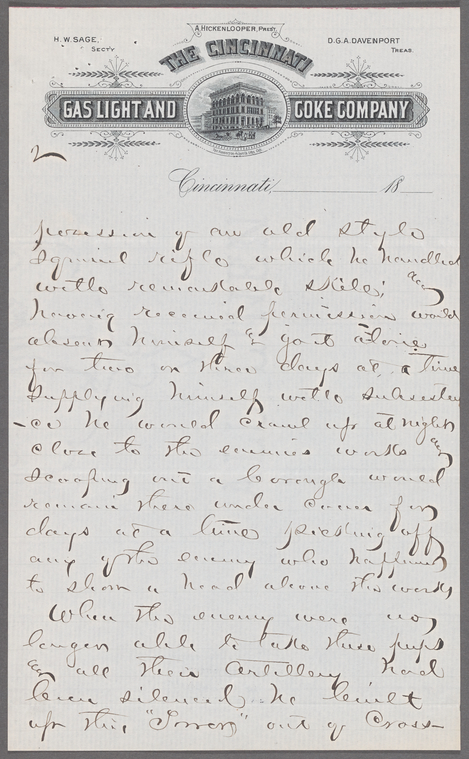 A. HICKENLOOPER, PREST.
H. W. SAGE, SECTY
D. G. A. DAVENPORT TREAS.
THE CINCINNATI
GAS LIGHT AND COKE COMPANY
2
Cincinnati, 18
possession of an old style
Squirrel rifle which he handled
with remarkable skill; and
having received permission would
absent himself & go out alone
for two or three days at a time
Supplying himself with subsisten
-ce he would crawl up at night
close to the enemies works and
scooping out a borough would
remain there under cover for
days at a time picking off
any of the enemy who happened
to show a head above the works
When the enemy were no
longer able to take these pops
as all their Artillery had
been silenced. he built
up this "Tower" out of Cross-